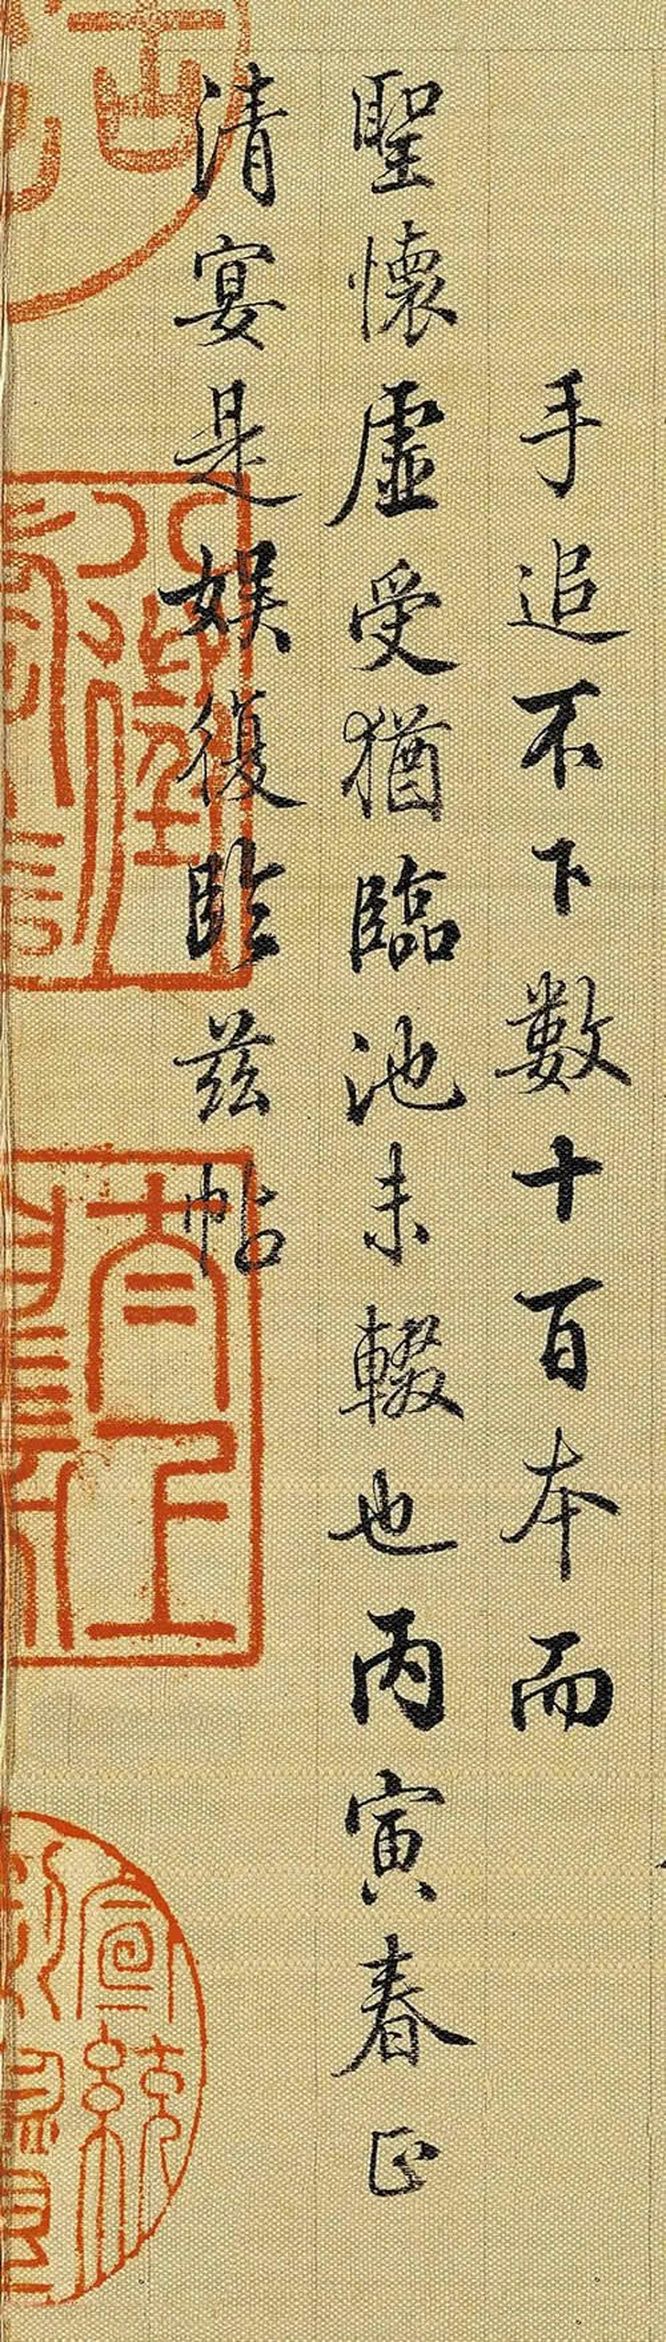 手追不下數十百本而
聖懷虛受猶臨池未輟也丙寅春正
清宴是娛復臨兹帖
太上
宣統